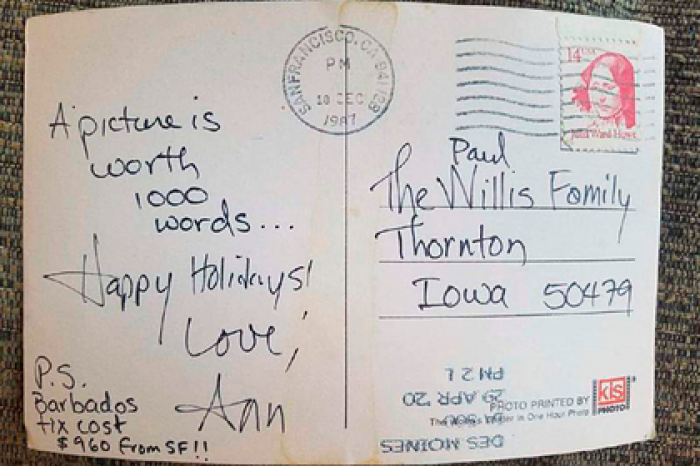 SAN FRANCISCO, CA 94188
PM
18 DEC
1987
14 USA
Julia Ward Howe
A picture is
worth
1000
words...
Happy Holidays!
Love,
Ann
P.S.
Barbados
tix cost
$960 from SF!!
Paul
The Willis Family
Thornton
Iowa 50479
PM 2 L
29 APR '20
PHOTO PRINTED BY
KIS
PHOTO
The World Leader in One Hour Photo
DES MOINES